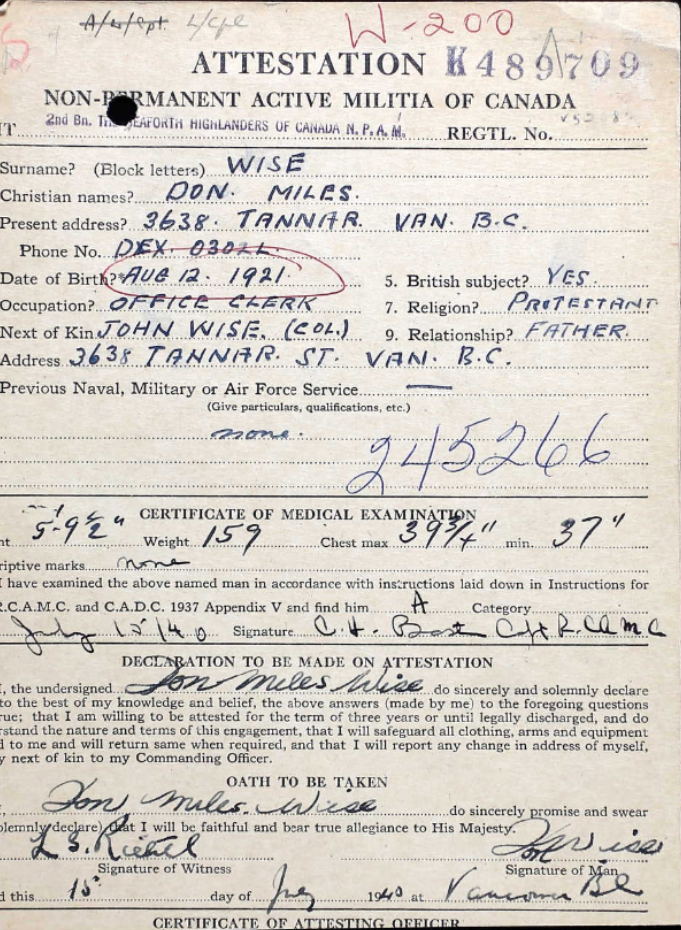 A/4/Cpt. L/Cpl
W-200
ATTESTATION K489709
NON-PERMANENT ACTIVE MILITIA OF CANADA
T 2nd Bn. THE SEAFORTH HIGHLANDERS OF CANADA N.P.A.M. REGTL. No.
Surname? (Block letters) WISE
Christian names? DON. MILES.
Present address? 3638. TANNAR. VAN. B.C.
Phone No. DEX. 0302L
Date of Birth?* AUG 12. 1921. 5. British subject? YES.
Occupation? OFFICE CLERK 7. Religion? PROTESTANT
Next of Kin JOHN WISE. (COL.) 9. Relationship? FATHER.
Address 3638 TANNAR. ST. VAN. B.C.
Previous Naval, Military or Air Force Service —
(Give particulars, qualifications, etc.)
none.
245266
CERTIFICATE OF MEDICAL EXAMINATION
nt 5'-9½" Weight 159 Chest max 39¾" min. 37"
riptive marks none
I have examined the above named man in accordance with instructions laid down in Instructions for
R.C.A.M.C. and C.A.D.C. 1937 Appendix V and find him A Category
July 15/40 Signature C.H. Capt R.C.A.M.C
DECLARATION TO BE MADE ON ATTESTATION
I, the undersigned Don Miles Wise do sincerely and solemnly declare
to the best of my knowledge and belief, the above answers (made by me) to the foregoing questions
rue; that I am willing to be attested for the term of three years or until legally discharged, and do
rstand the nature and terms of this engagement, that I will safeguard all clothing, arms and equipment
d to me and will return same when required, and that I will report any change in address of myself,
y next of kin to my Commanding Officer.
OATH TO BE TAKEN
I, Don Miles. Wise do sincerely promise and swear
olemnly declare) that I will be faithful and bear true allegiance to His Majesty.
L.S. D Wise
Signature of Witness Signature of Man
d this 15 day of July 1940 at Vancouver BC
CERTIFICATE OF ATTESTING OFFICER